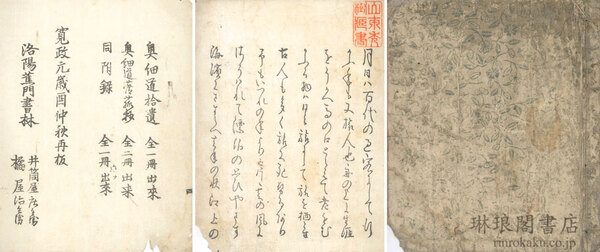 琳琅閣書店
rinrokaku.co.jp
月日は百代の過客にして行
かふ年も又旅人也舟の上に生涯
をうかへ馬の口とらえて老をむ
かふる物は日々旅にして旅を栖とす
古人も多く旅に死せるあり予
もいつれの年よりか片雲の風に
さそはれて漂泊の思ひやます
海濱にさすらへ去年の秋江上の
奥細道拾遺 全一冊 出来
奥細道菅菰抄 全二冊 出来
同附録 全一冊 出来
寛政元歳酉仲秋再板
洛陽蕉門書林 井筒屋庄兵衛
橘屋治兵衛